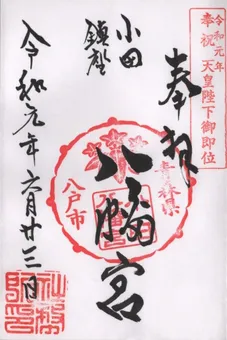 令和元年
奉祝 天皇陛下御即位
奉拝
小田
鎮座
八幡宮
青森県
八戸市
令和元年六月廿三日
社務所印